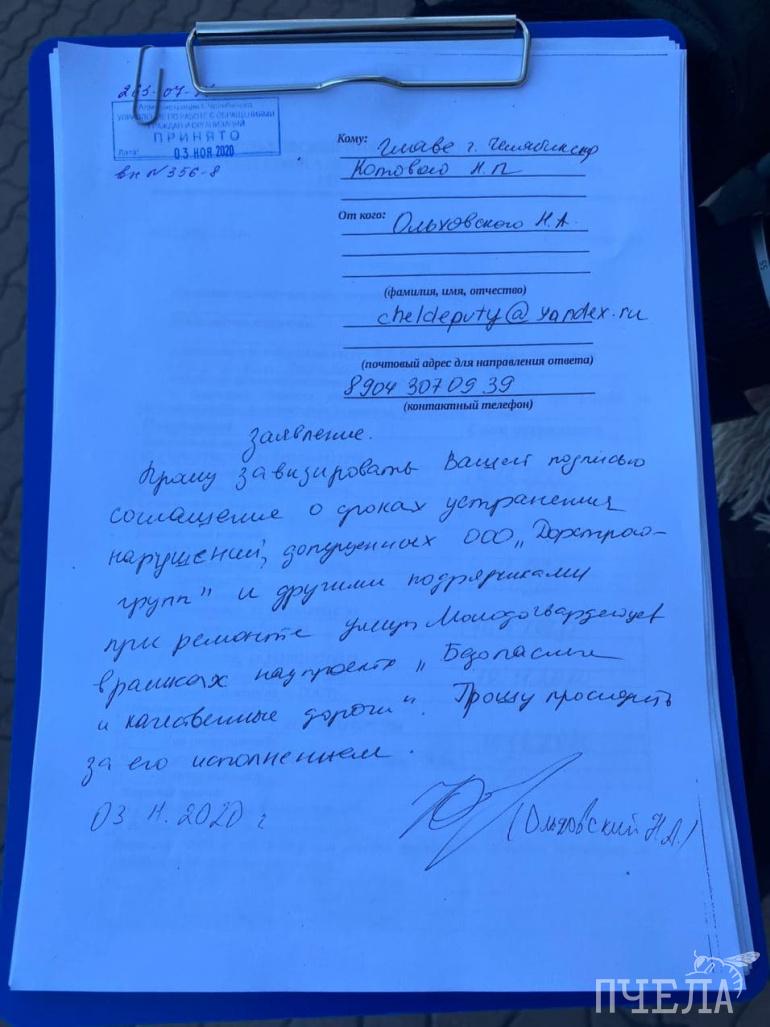 Администрация г. Челябинска
УПРАВЛЕНИЕ ПО РАБОТЕ С ОБРАЩЕНИЯМИ
ГРАЖДАН И ОРГАНИЗАЦИЙ
ПРИНЯТО
Дата: 03 НОЯ 2020
вх N 356-8
Кому: Главе г. Челябинска
Котовой Н.П
От кого: Ольховского Н.А.
(фамилия, имя, отчество)
cheldeputy@yandex.ru
(почтовый адрес для направления ответа)
8904 307 09 39
(контактный телефон)
Заявление.
Прошу завизировать Вашей подписью
соглашение о сроках устранения
нарушений, допущенных ООО „Дорстрой-
групп" и другими подрядчиками
при ремонте улицы Молодогвардейцев
в рамках нацпроекта „Безопасные
и качественные дороги". Прошу проследить
за его исполнением.
03.11.2020 г
(Ольховский Н.А.)
ПЧЕЛА